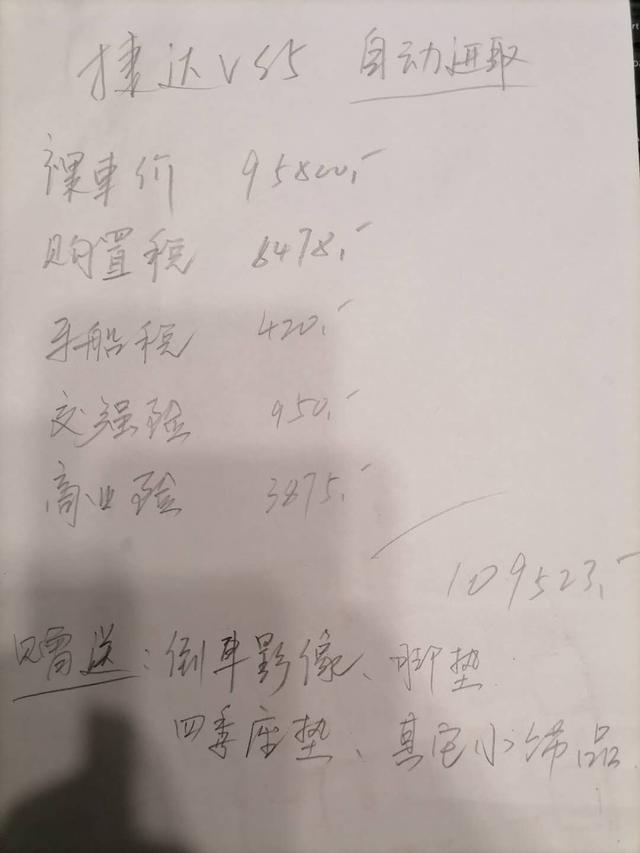 捷达VS5 自动进取
裸車价 95800,-
购置税 8478,-
车船税 420,-
交强险 950,-
商业险 3875,-
109523,-
赠送：倒車影像、脚垫
四季座垫、其它小饰品